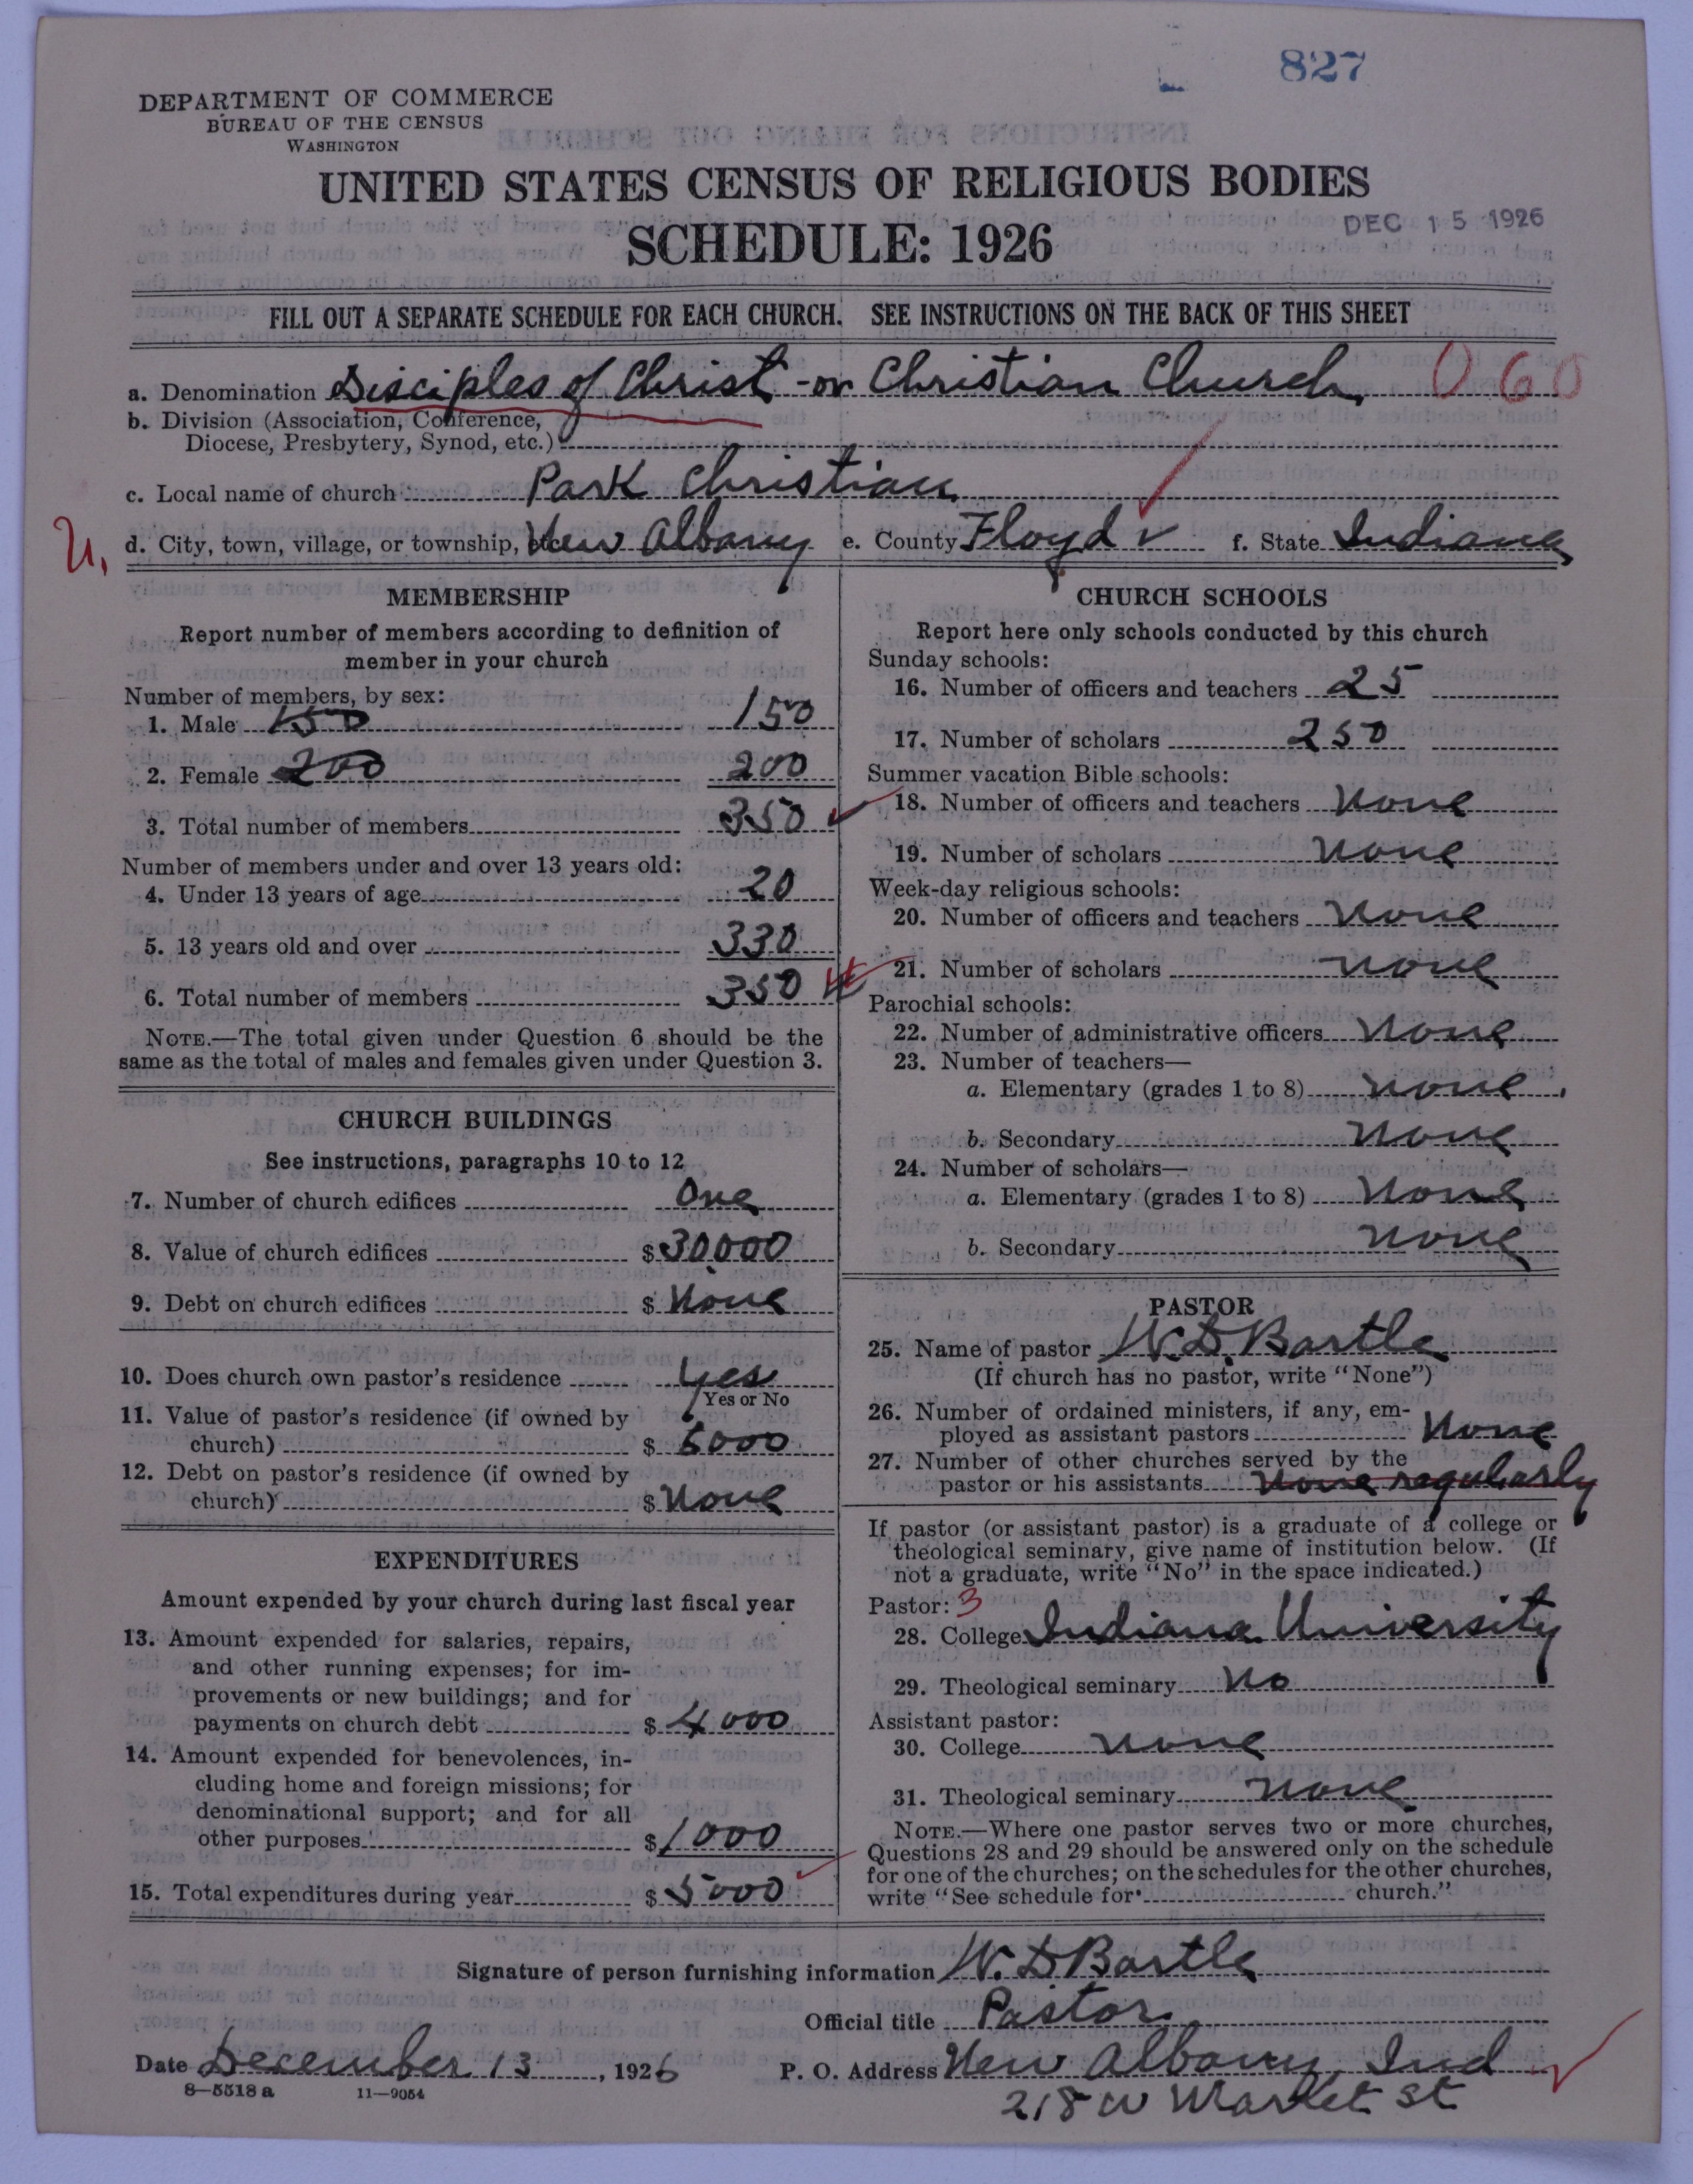 827
DEPARTMENT OF COMMERCE
BUREAU OF THE CENSUS
WASHINGTON
UNITED STATES CENSUS OF RELIGIOUS BODIES
SCHEDULE: 1926
DEC 15 1926
FILL OUT A SEPARATE SCHEDULE FOR EACH CHURCH. SEE INSTRUCTIONS ON THE BACK OF THIS SHEET
a. Denomination Disciples of Christ - or Christian Church 060
b. Division (Association, Conference,
Diocese, Presbytery, Synod, etc.)
c. Local name of church Park Christian
d. City, town, village, or township, New Albany e. County Floyd f. State Indiana
MEMBERSHIP
Report number of members according to definition of
member in your church
Number of members, by sex:
1. Male 150 150
2. Female 200 200
3. Total number of members 350
Number of members under and over 13 years old:
4. Under 13 years of age 20
5. 13 years old and over 330
6. Total number of members 350
NOTE.—The total given under Question 6 should be the
same as the total of males and females given under Question 3.
CHURCH BUILDINGS
See instructions, paragraphs 10 to 12
7. Number of church edifices One
8. Value of church edifices $ 30,000
9. Debt on church edifices $ None
10. Does church own pastor's residence Yes
Yes or No
11. Value of pastor's residence (if owned by
church) $ 6000
12. Debt on pastor's residence (if owned by
church) $ None
EXPENDITURES
Amount expended by your church during last fiscal year
13. Amount expended for salaries, repairs,
and other running expenses; for im-
provements or new buildings; and for
payments on church debt $ 4000
14. Amount expended for benevolences, in-
cluding home and foreign missions; for
denominational support; and for all
other purposes $ 1000
15. Total expenditures during year $ 5000
CHURCH SCHOOLS
Report here only schools conducted by this church
Sunday schools:
16. Number of officers and teachers 25
17. Number of scholars 250
Summer vacation Bible schools:
18. Number of officers and teachers None
19. Number of scholars None
Week-day religious schools:
20. Number of officers and teachers None
21. Number of scholars None
Parochial schools:
22. Number of administrative officers None
23. Number of teachers—
a. Elementary (grades 1 to 8) None
b. Secondary None
24. Number of scholars—
a. Elementary (grades 1 to 8) None
b. Secondary None
PASTOR
25. Name of pastor W. D. Bartle
(If church has no pastor, write "None")
26. Number of ordained ministers, if any, em-
ployed as assistant pastors None
27. Number of other churches served by the
pastor or his assistants None regularly
If pastor (or assistant pastor) is a graduate of a college or
theological seminary, give name of institution below. (If
not a graduate, write "No" in the space indicated.)
Pastor: 3
28. College Indiana University
29. Theological seminary No
Assistant pastor:
30. College None
31. Theological seminary None
NOTE.—Where one pastor serves two or more churches,
Questions 28 and 29 should be answered only on the schedule
for one of the churches; on the schedules for the other churches,
write "See schedule for church."
Signature of person furnishing information W. D. Bartle
Official title Pastor
Date December 13, 1926 P. O. Address New Albany Ind
8—5518 a 11—9054 218 W Market St